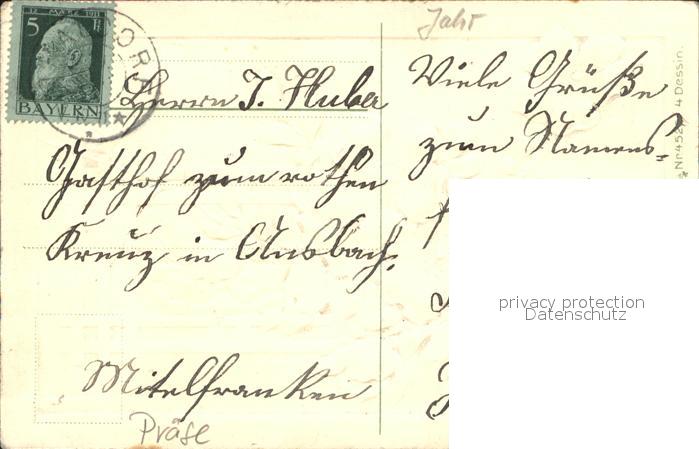 12 MÄRZ 1911
5 Pf
BAYERN
Herrn J. Huber
Gasthof zum rothen
Kreuz in Ansbach.
Mitelfranken
Präge
Jahr
Viele Grüße
zum Namens=
privacy protection
Datenschutz
Nr 452 4 Dessin.